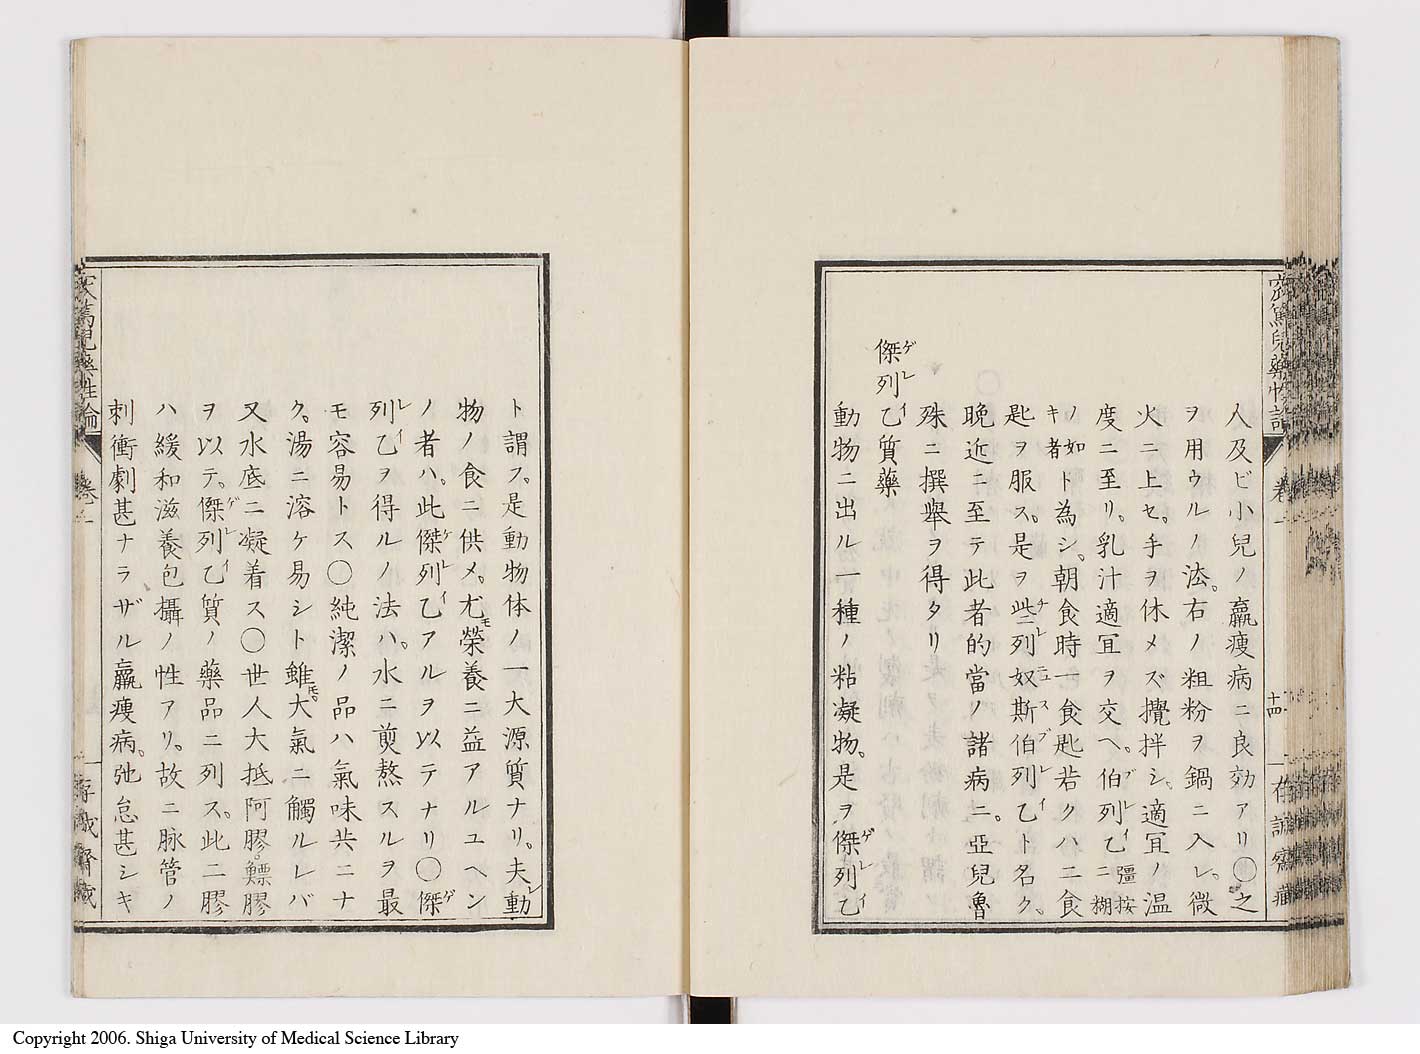 人及ビ小兒ノ羸瘦病ニ良効アリ○之
ヲ用ウルノ法。右ノ粗粉ヲ鍋ニ入レ。微
火ニ上セ。手ヲ休メズ攪拌シ。適冝ノ温
度ニ至リ。乳汁適冝ヲ交ヘ。伯列乙ニ按彊糊
ノ如キ者ト為シ。朝食時一食匙若クハ二食
匙ヲ服ス。是ヲ些列奴斯伯列乙ト名ク。
晩近ニ至テ此者的當ノ諸病ニ。亞兒魯
殊ニ撰舉ヲ得タリ
傑列乙質藥
動物ニ出ル一種ノ粘凝物。是ヲ傑列乙
藥性論
卷一
十四
存誠齋藏
ト謂フ。是動物体ノ一大源質ナリ。夫動
物ノ食ニ供メ。尤榮養ニ益アルユヘン
ノ者ハ。此傑列乙アルヲ以テナリ○傑
列乙ヲ得ルノ法ハ。水ニ煎熬スルヲ最
モ容易トス○純潔ノ品ハ氣味共ニナ
ク。湯ニ溶ケ易シト雖大氣ニ觸ルレバ
又水底ニ凝着ス○世人大抵阿膠。鰾膠
ヲ以テ。傑列乙質ノ藥品ニ列ス。此二膠
ハ緩和滋養包攝ノ性アリ。故ニ脉管ノ
刺衝劇甚ナラザル羸痩病。弛怠甚シキ
Copyright 2006. Shiga University of Medical Science Library